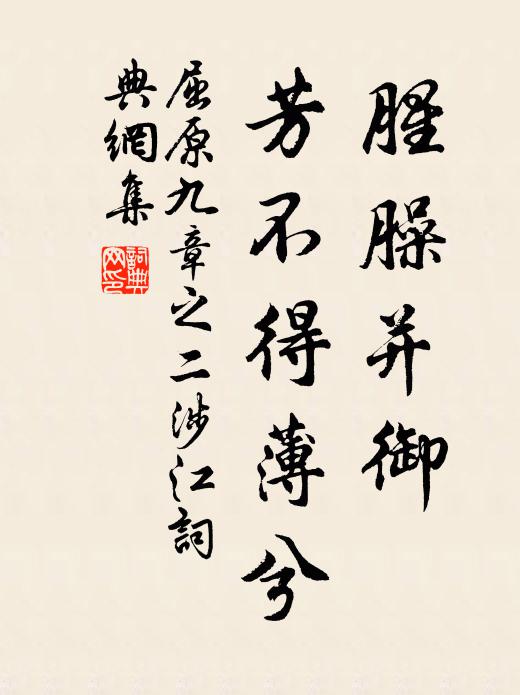 腥臊并御
芳不得薄兮
屈原九章之二涉江詞
典網集
詞典網印